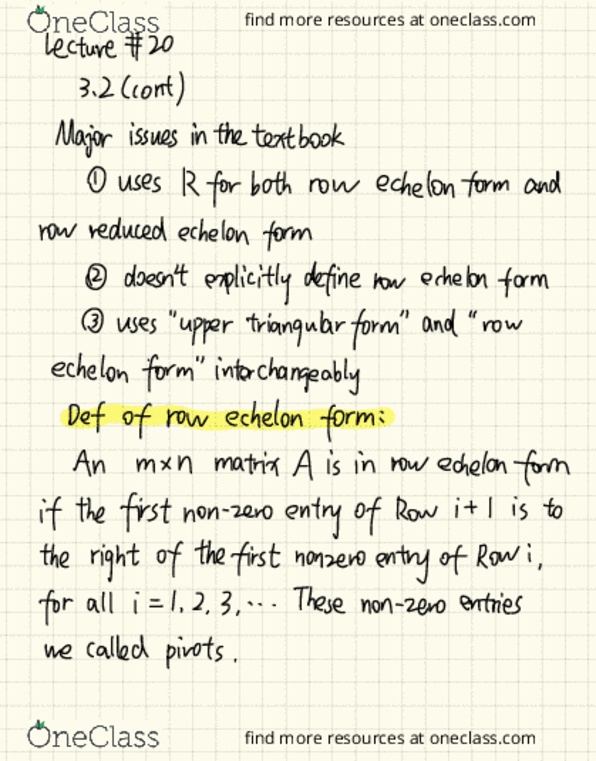 OneClass find more resources at oneclass.com
Lecture #20
3.2 (cont)
Major issues in the textbook
① uses R for both row echelon form and
row reduced echelon form
② doesn't explicitly define row echelon form
③ uses "upper triangular form" and "row
echelon form" interchangeably
Def of row echelon form:
An m×n matrix A is in row echelon form
if the first non-zero entry of Row i+1 is to
the right of the first nonzero entry of Row i,
for all i = 1, 2, 3, ... These non-zero entries
we called pivots.
OneClass find more resources at oneclass.com